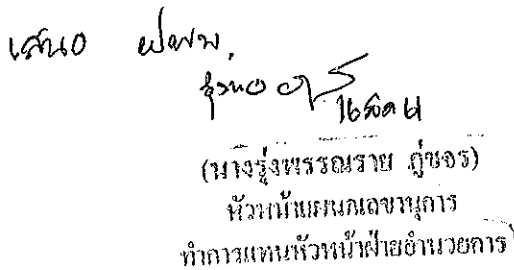 เสนอ
16 สิงค 61
(นางรุ่งพรรณราย ภู่ขจร)
หัวหน้าแผนกเลขานุการ
ทำการแทนหัวหน้าฝ่ายอำนวยการ